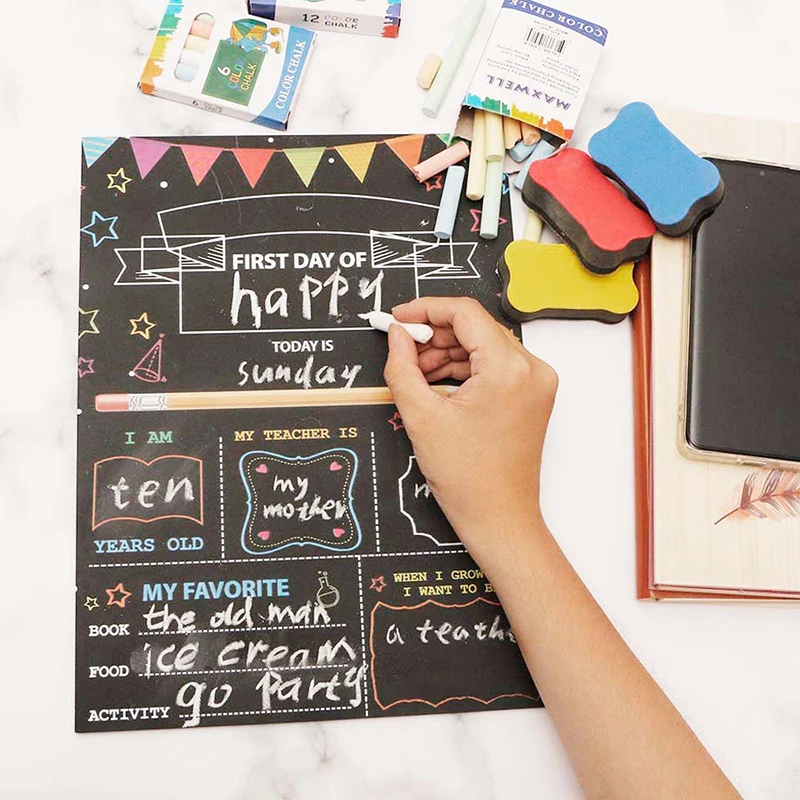 12 COLOR CHALK
6 COLOR CHALK
COLOR CHALK
COLOR CHALK
MAXWELL
FIRST DAY OF
happy
TODAY IS
sunday
I AM
ten
YEARS OLD
MY TEACHER IS
my
mother
MY FAVORITE
BOOK the old man
FOOD ice cream
ACTIVITY go party
WHEN I
I WANT TO
a